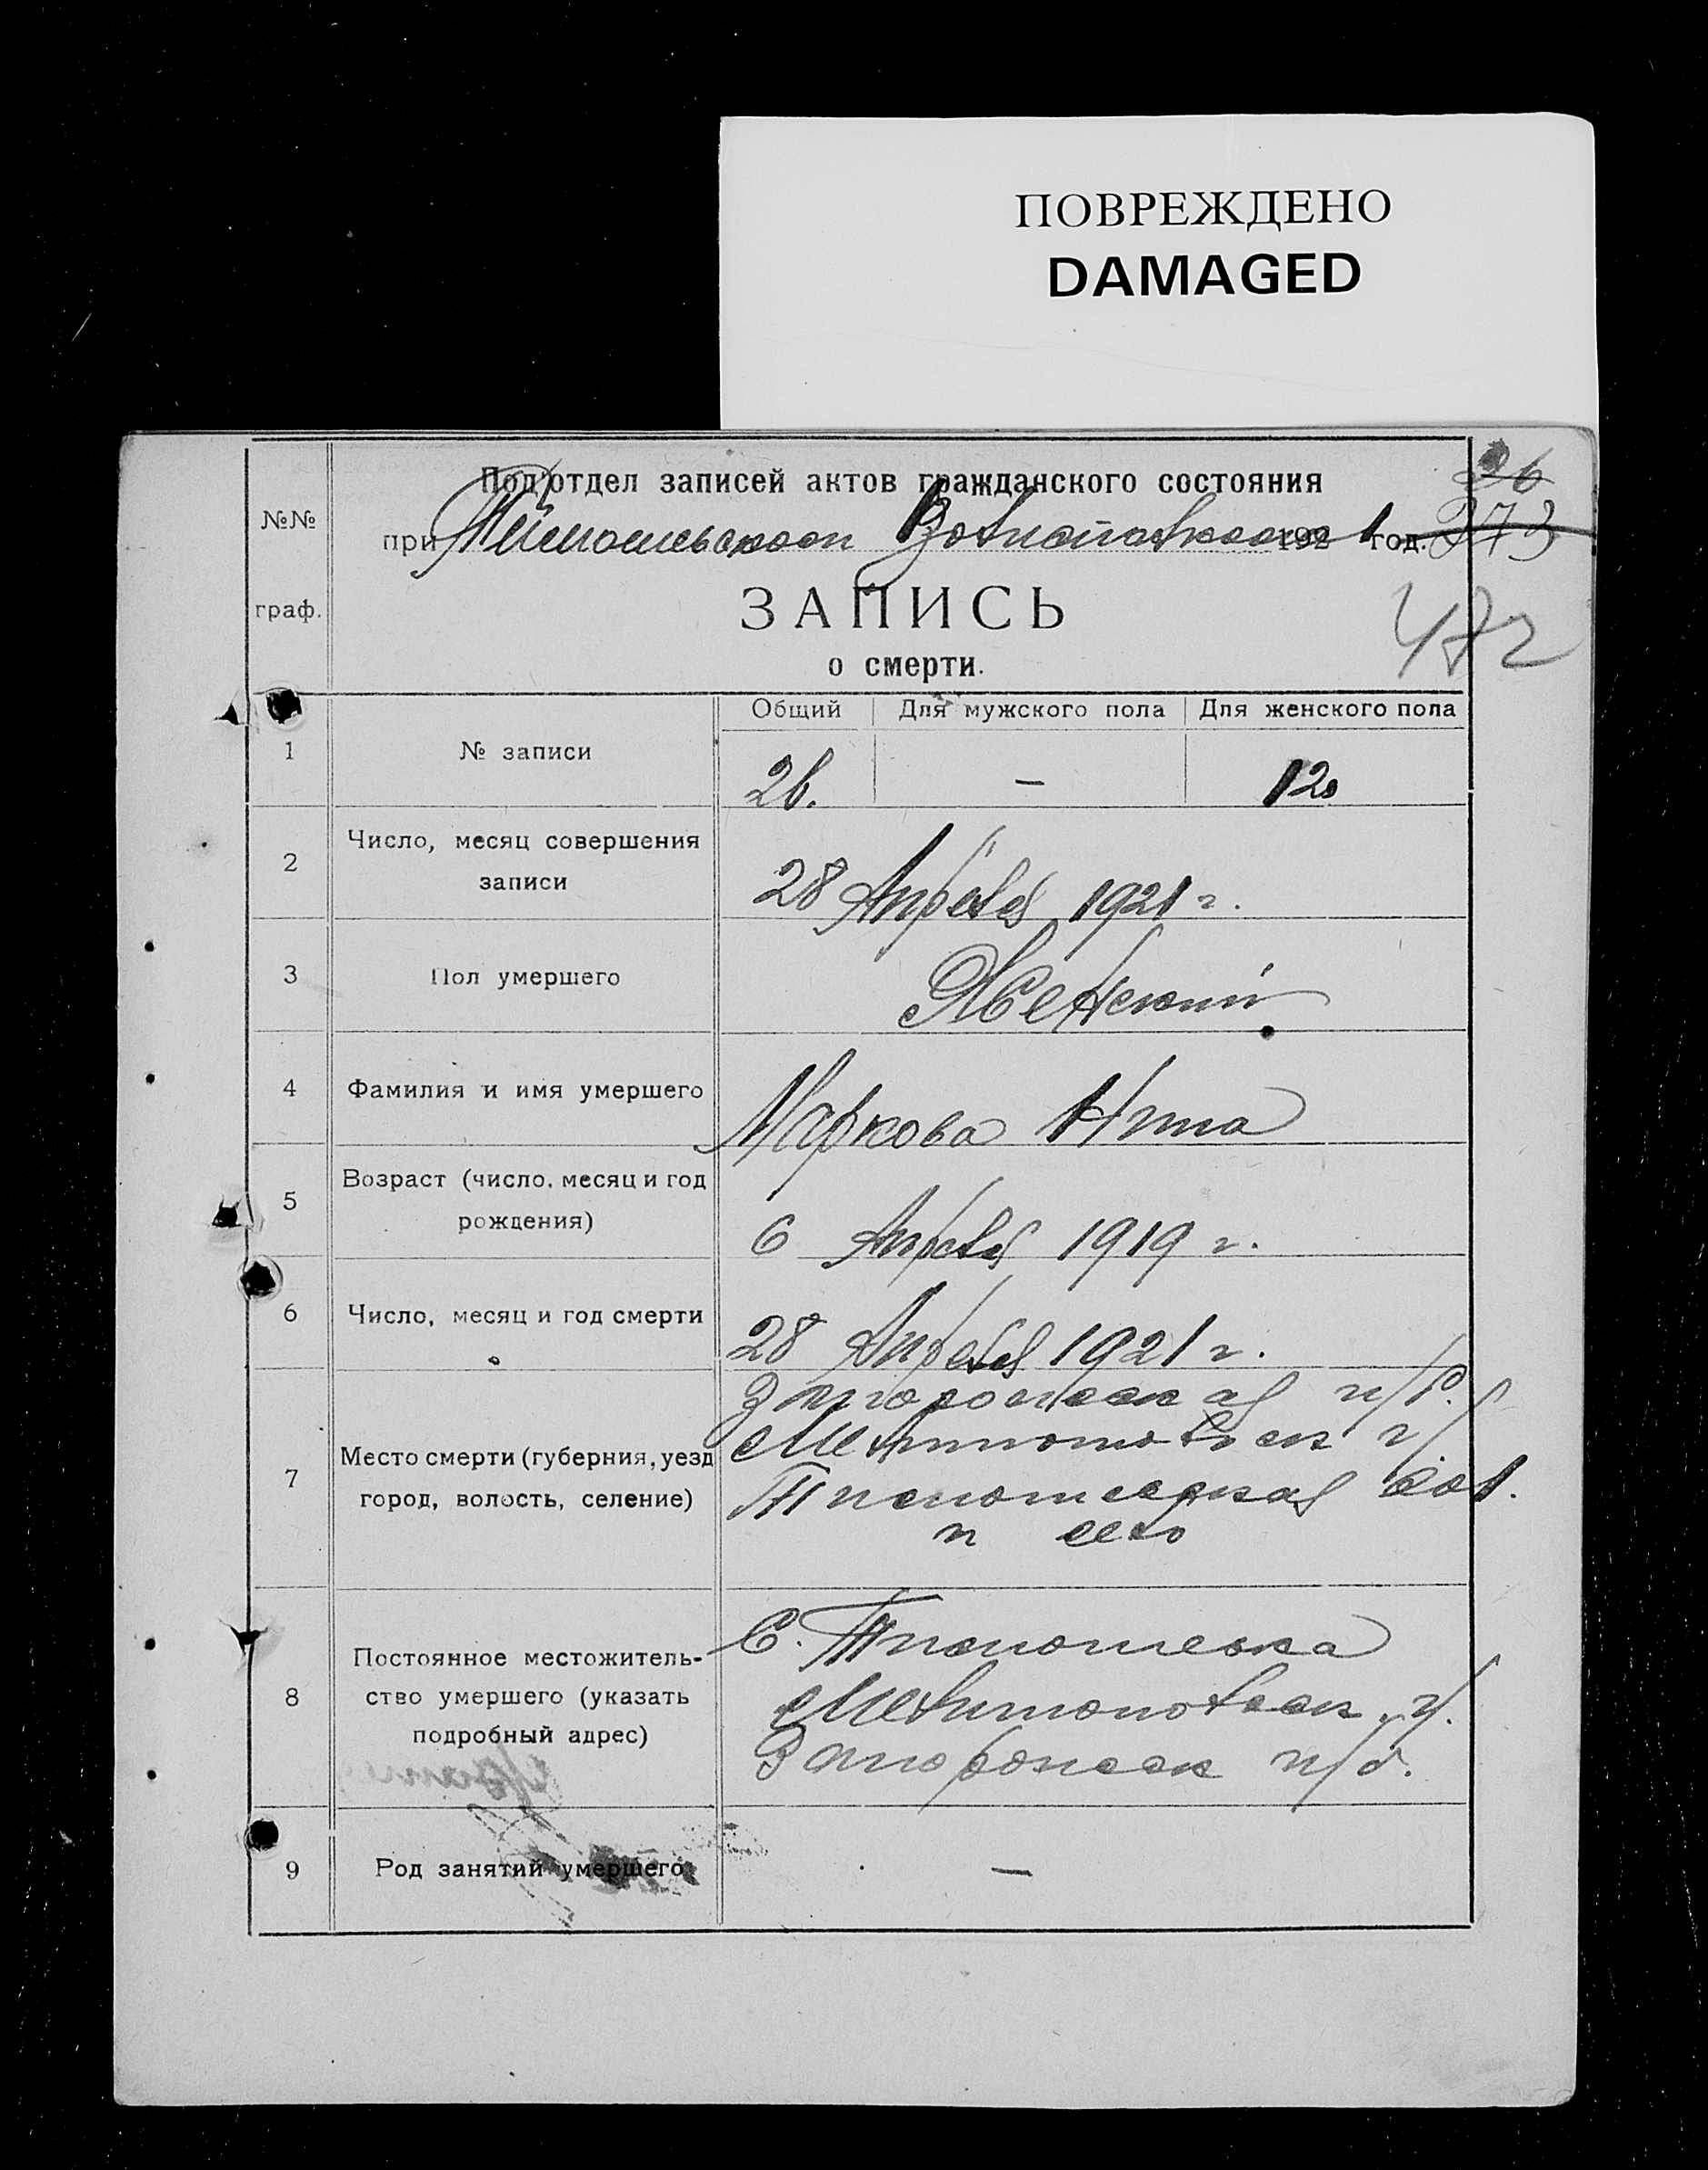 ПОВРЕЖДЕНО
DAMAGED
Подотдел записей актов гражданского состояния
26
№№
при 1921 год.
373
граф.
ЗАПИСЬ
472
о смерти.
Общий Для мужского пола Для женского пола
1 № записи 26. — 12
2 Число, месяц совершения
записи 28 Апреля 1921 г.
3 Пол умершего Женский
4 Фамилия и имя умершего Маркова Нина
5 Возраст (число, месяц и год
рождения) 6 Апреля 1919 г.
6 Число, месяц и год смерти 28 Апреля 1921 г.
Запорожская г/б.
7 Место смерти (губерния, уезд
город, волость, селение)
и село
8 Постоянное местожитель-
ство умершего (указать
подробный адрес)
С. Тимошевка
Мелитопольск. у.
Запорожск г/б.
9 Род занятий умершего —